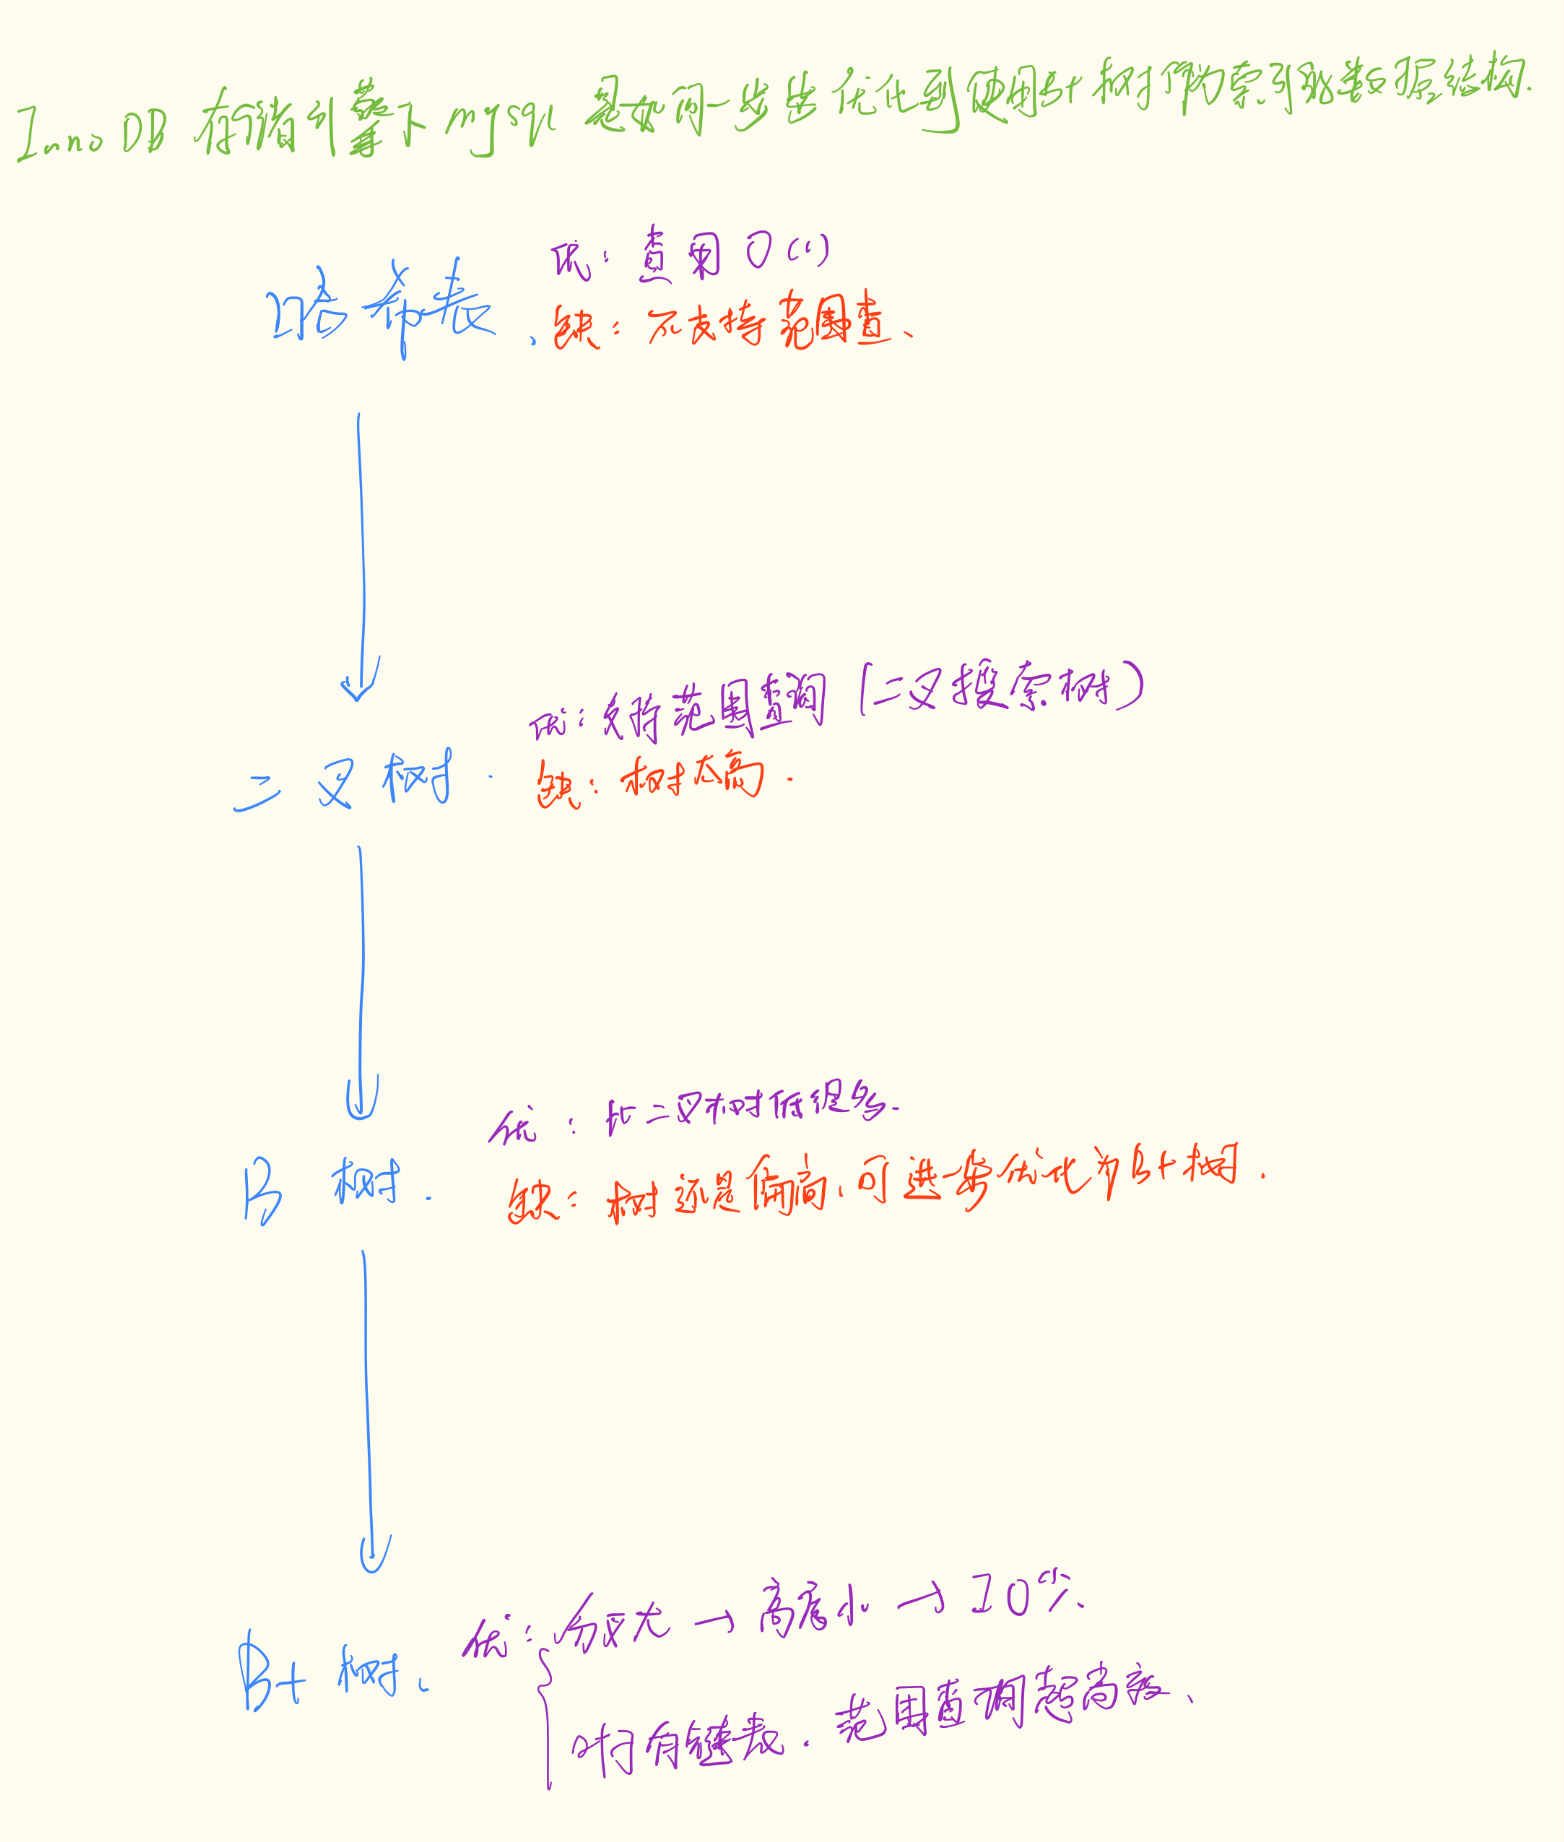 InnoDB 存储引擎下 mysql 是如何一步步优化到使用B+树作为索引的数据结构.
优：查用 O(1)
哈希表、
缺：不支持范围查、
优：支持范围查询（二叉搜索树）
二叉树.
缺：树太高.
优：比二叉树低很多.
B 树.
缺：树还是偏高，可进一步优化为B+树.
优：分叉大 → 高度小 → IO少、
B+ 树、
叶子有链表. 范围查询超高效、